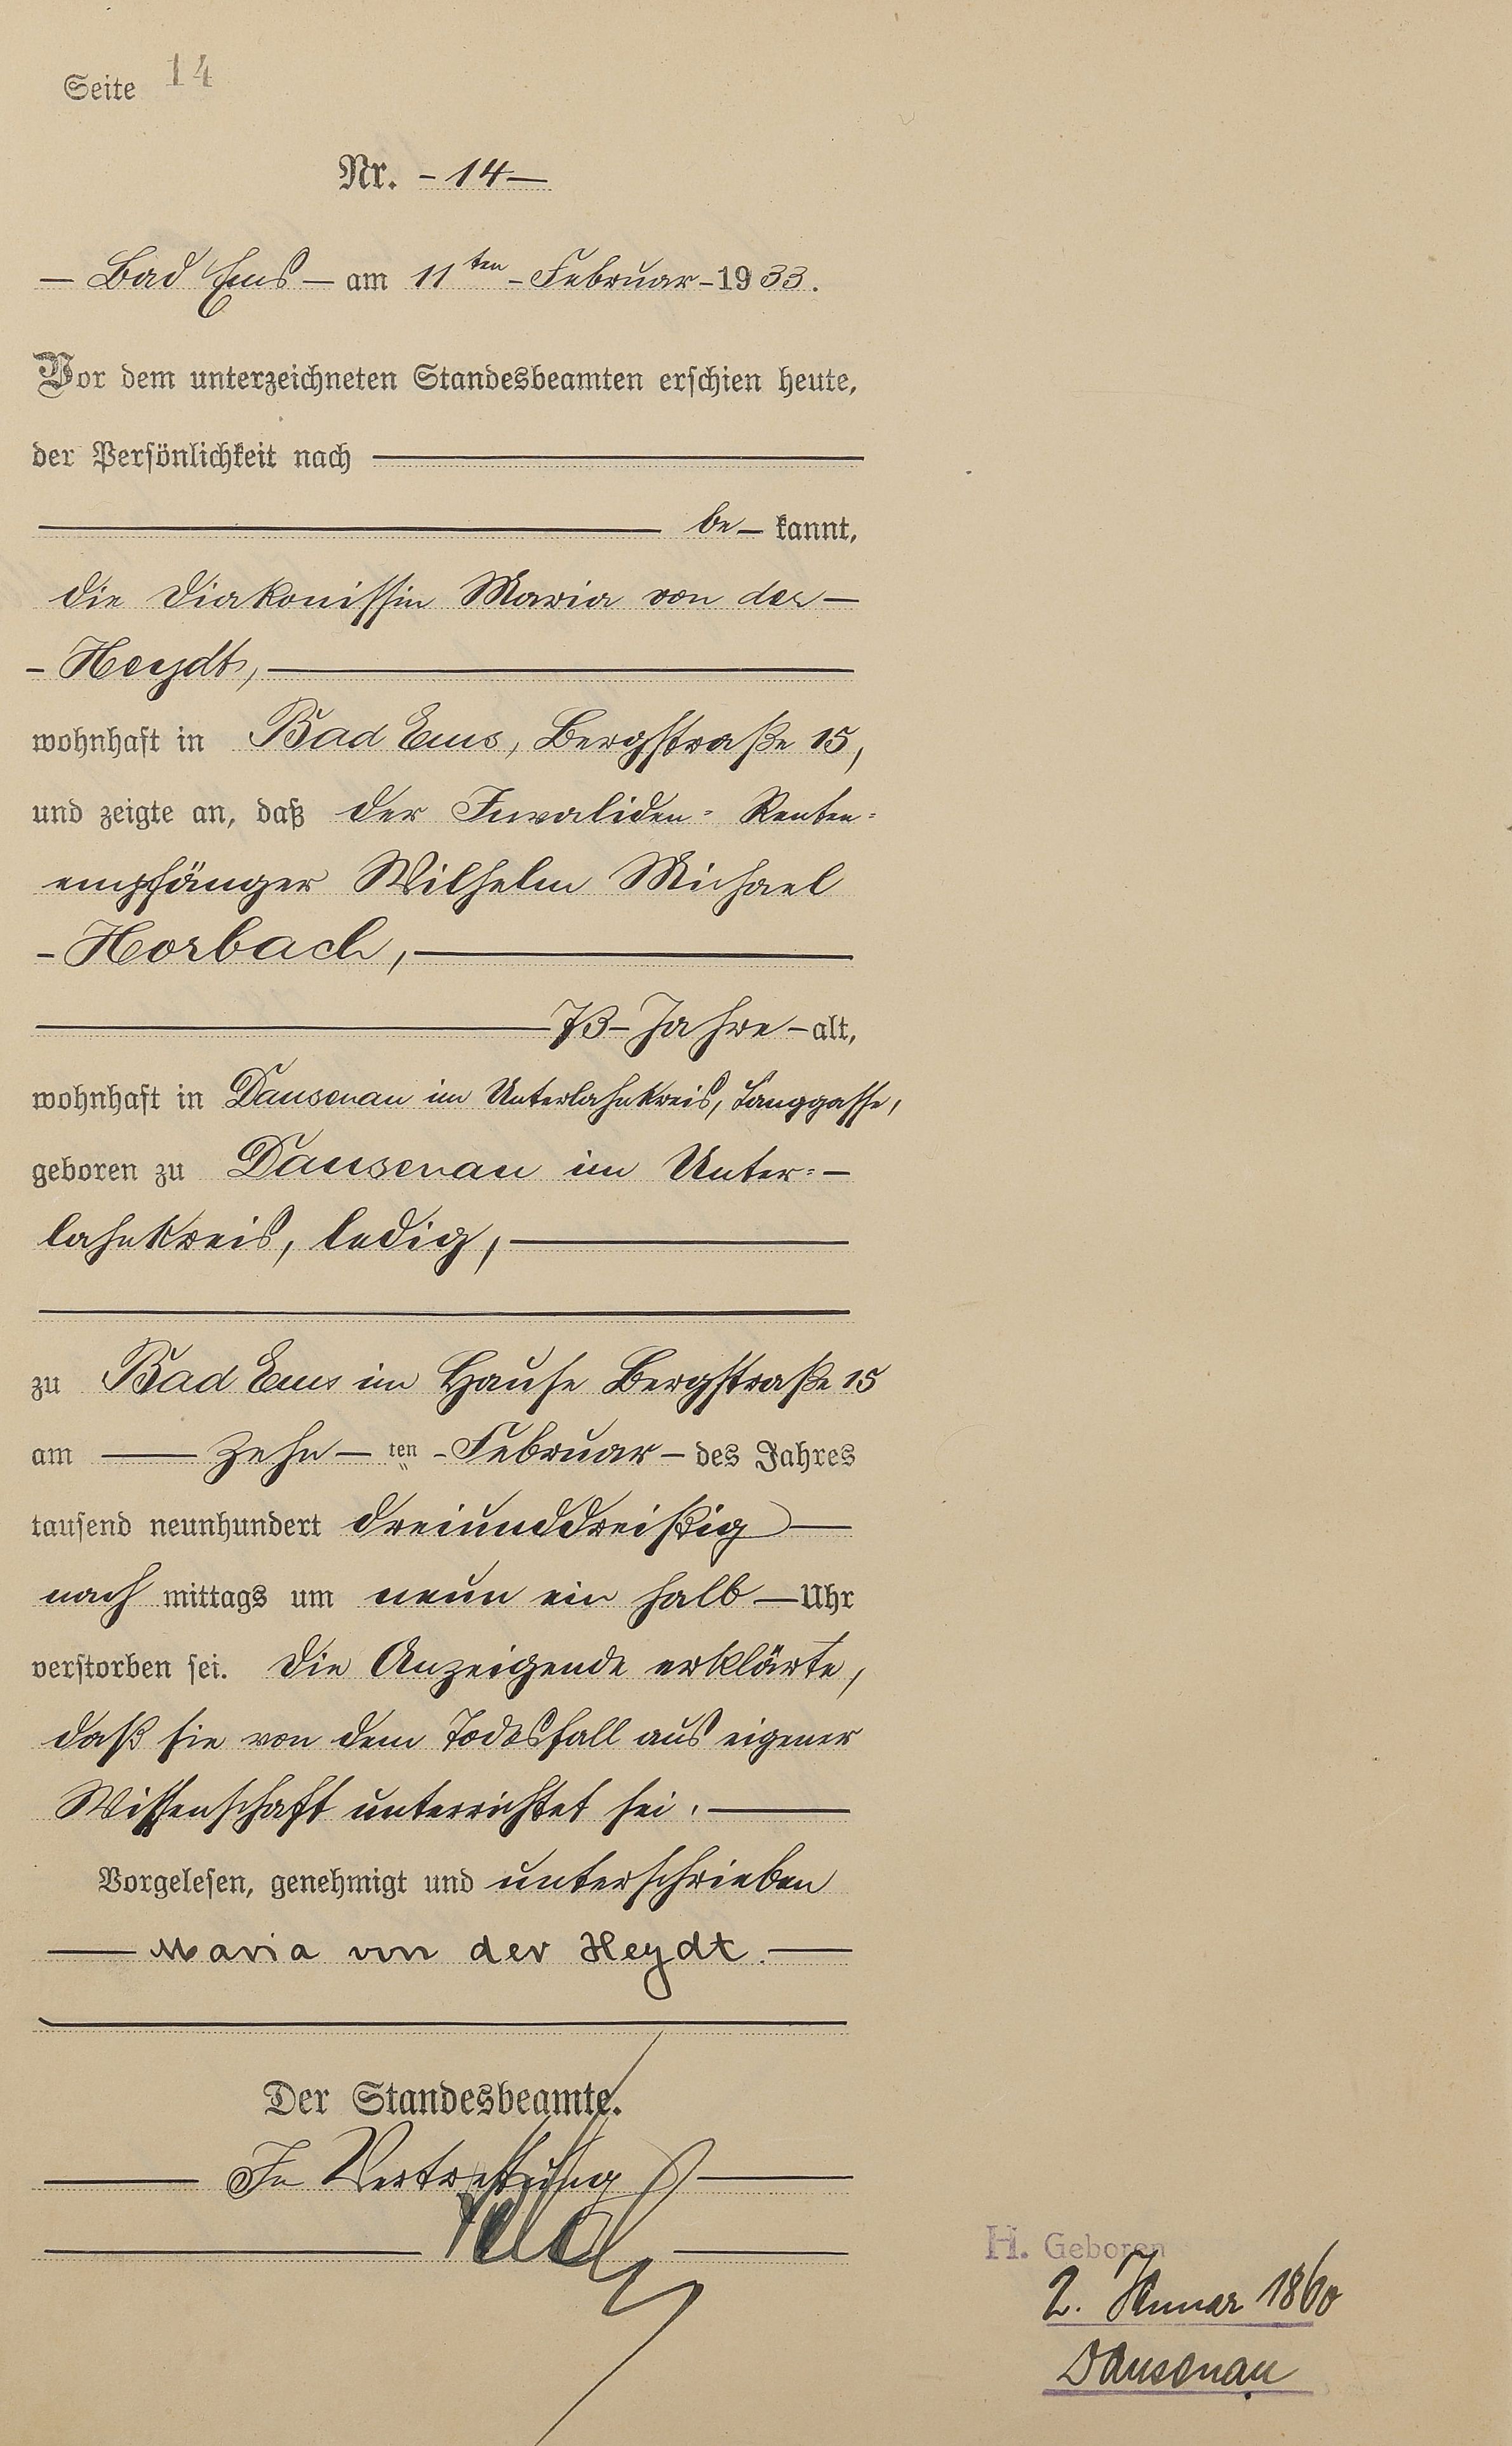 Seite 14
Nr. - 14 -
- Bad Ems - am 11ten - Februar - 1933.
Vor dem unterzeichneten Standesbeamten erschien heute,
der Persönlichkeit nach
be - kannt,
die Diakonissin Maria von der -
- Heydt,
wohnhaft in Bad Ems, Bergstraße 15,
und zeigte an, daß der Invaliden= Renten=
empfänger Wilhelm Michael
- Horbach,
73 - Jahre - alt,
wohnhaft in Dausenau im Unterlahnkreis, Langgasse,
geboren zu Dausenau im Unter= -
lahnkreis, ledig,
zu Bad Ems im Hause Bergstraße 15
am - zehn - ten - Februar - des Jahres
tausend neunhundert dreiunddreißig -
nach mittags um neun ein halb - Uhr
verstorben sei. Die Anzeigende erklärte,
daß sie von dem Todesfall aus eigener
Wissenschaft unterrichtet sei.
Vorgelesen, genehmigt und unterschrieben
- Maria von der Heydt. -
Der Standesbeamte.
In Vertretung
H. Geboren
2. Januar 1860
Dausenau